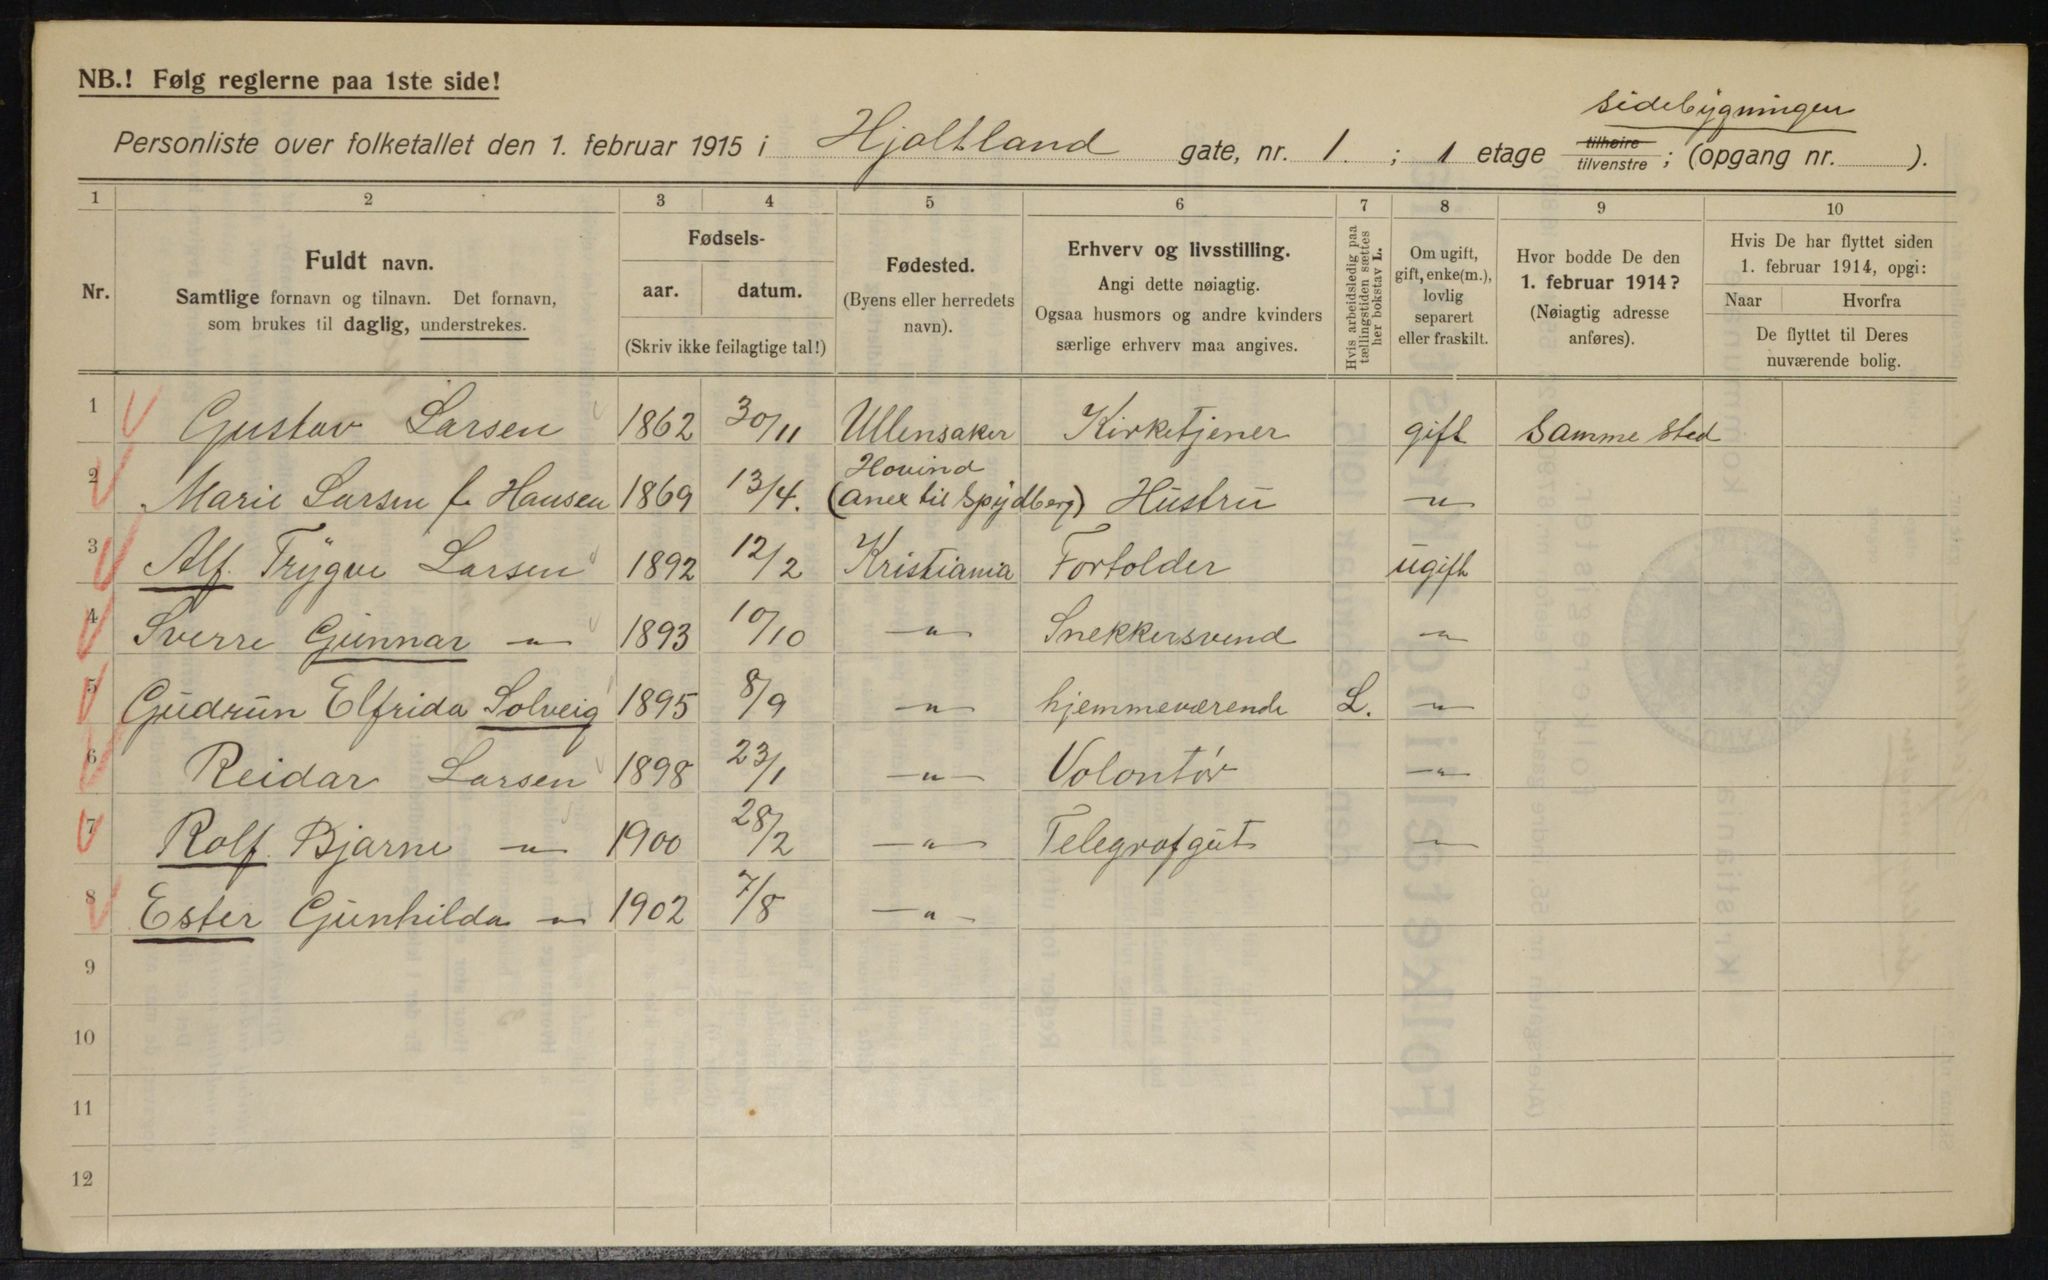 NB.! Følg reglerne paa 1ste side!
sidebygningen
Personliste over folketallet den 1. februar 1915 i Hjaltland gate, nr. 1. ; 1 etage tilhøire tilvenstre ; (opgang nr. ).
1 2 3 4 5 6 7 8 9 10
Nr.
Fuldt navn.
Samtlige fornavn og tilnavn. Det fornavn,
som brukes til daglig, understrekes.
Fødsels-
aar. datum.
(Skriv ikke feilagtige tal!)
Fødested.
(Byens eller herredets
navn).
Erhverv og livsstilling.
Angi dette nøiagtig.
Ogsaa husmors og andre kvinders
særlige erhverv maa angives.
Hvis arbeidsledig paa
tællingstiden sættes
her bokstav L.
Om ugift,
gift, enke(m.),
lovlig
separert
eller fraskilt.
Hvor bodde De den
1. februar 1914?
(Nøiagtig adresse
anføres).
Hvis De har flyttet siden
1. februar 1914, opgi:
Naar Hvorfra
De flyttet til Deres
nuværende bolig.
1 Gustav Larsen 1862 30/11 Ullensaker Kirketjener gift Samme sted
2 Marie Larsen f. Hansen 1869 13/4. Hovind (anex til Spydberg) Hustru -"-
3 Alf. Trygve Larsen 1892 12/2 Kristiania Fortolder ugift
4 Sverre Gunnar -"- 1893 10/10 -"- Snekkersvend -"-
5 Gudrun Elfrida Solveig 1895 8/9 -"- hjemmeværende L. -"-
6 Reidar Larsen 1898 23/1 -"- Volontør -"-
7 Rolf. Bjarne -"- 1900 28/2 -"- Telegrafgut -"-
8 Ester Gunhilda -"- 1902 7/8 -"-
9
10
11
12